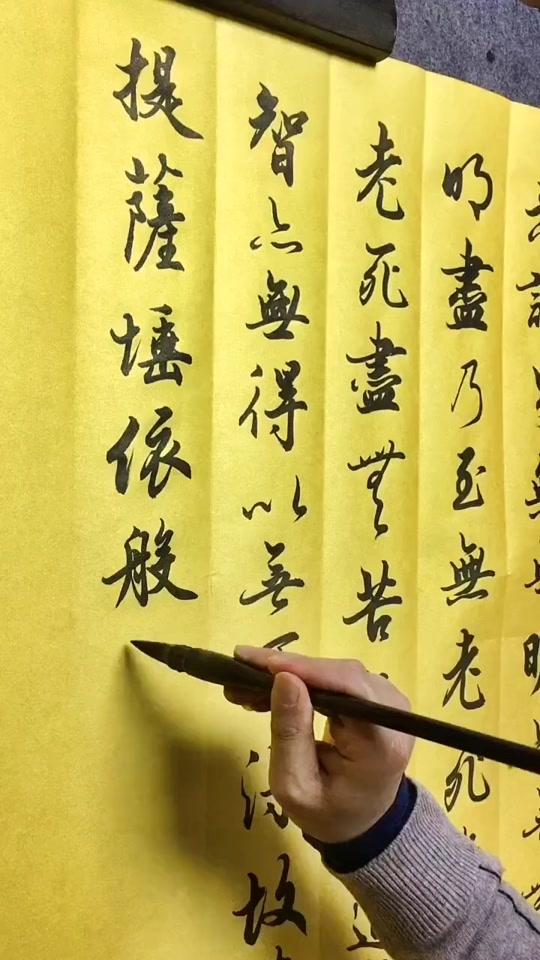 明盡乃至無老死
老死盡無苦
智亦無得以無得故
提薩埵依般